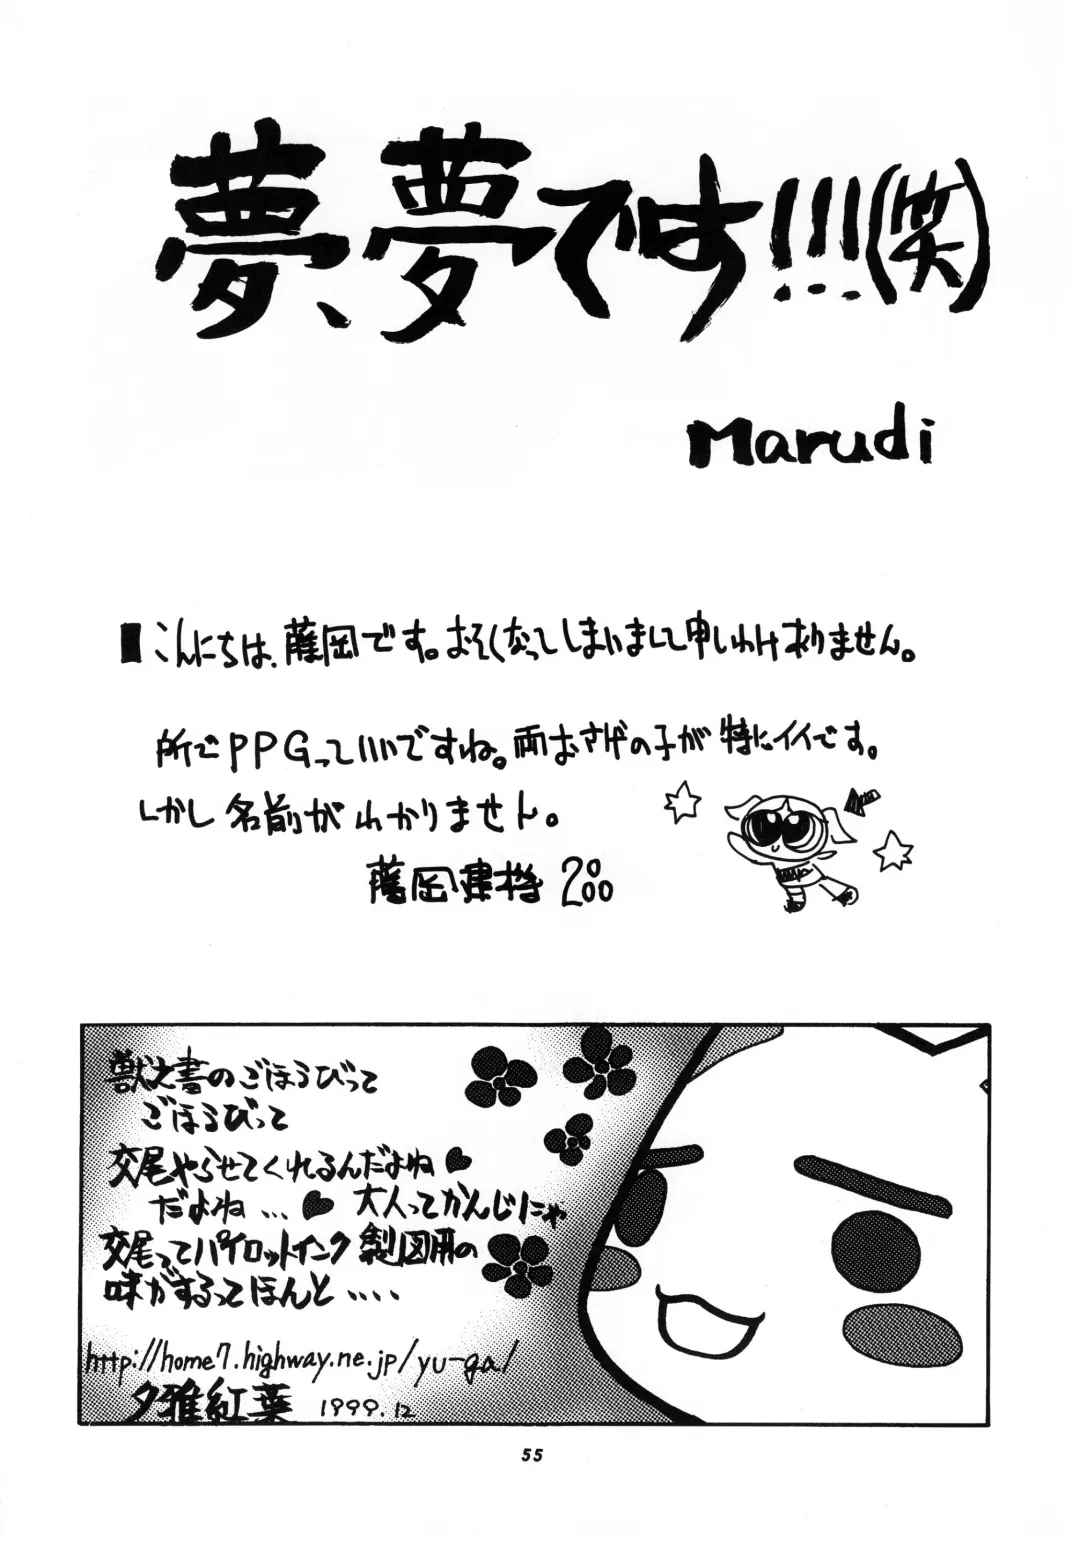 夢、夢です!!!(笑)
Marudi
こんにちは、藤岡です。おそくなってしまいまして申しわけありません。
所でPPGっていいですね。両おさげの子が特にイイです。
しかし名前がわかりません。
藤岡建機 2000
獣之書のごほうびって
ごほうびって
交尾やらせてくれるんだよね♥
だよね...♥ 大人ってかんじにゃ
交尾ってパイロットインク製図用の
味がするってほんと....
http://home7.highway.ne.jp/yu-ga/
夕雅紅葉 1999.12
55